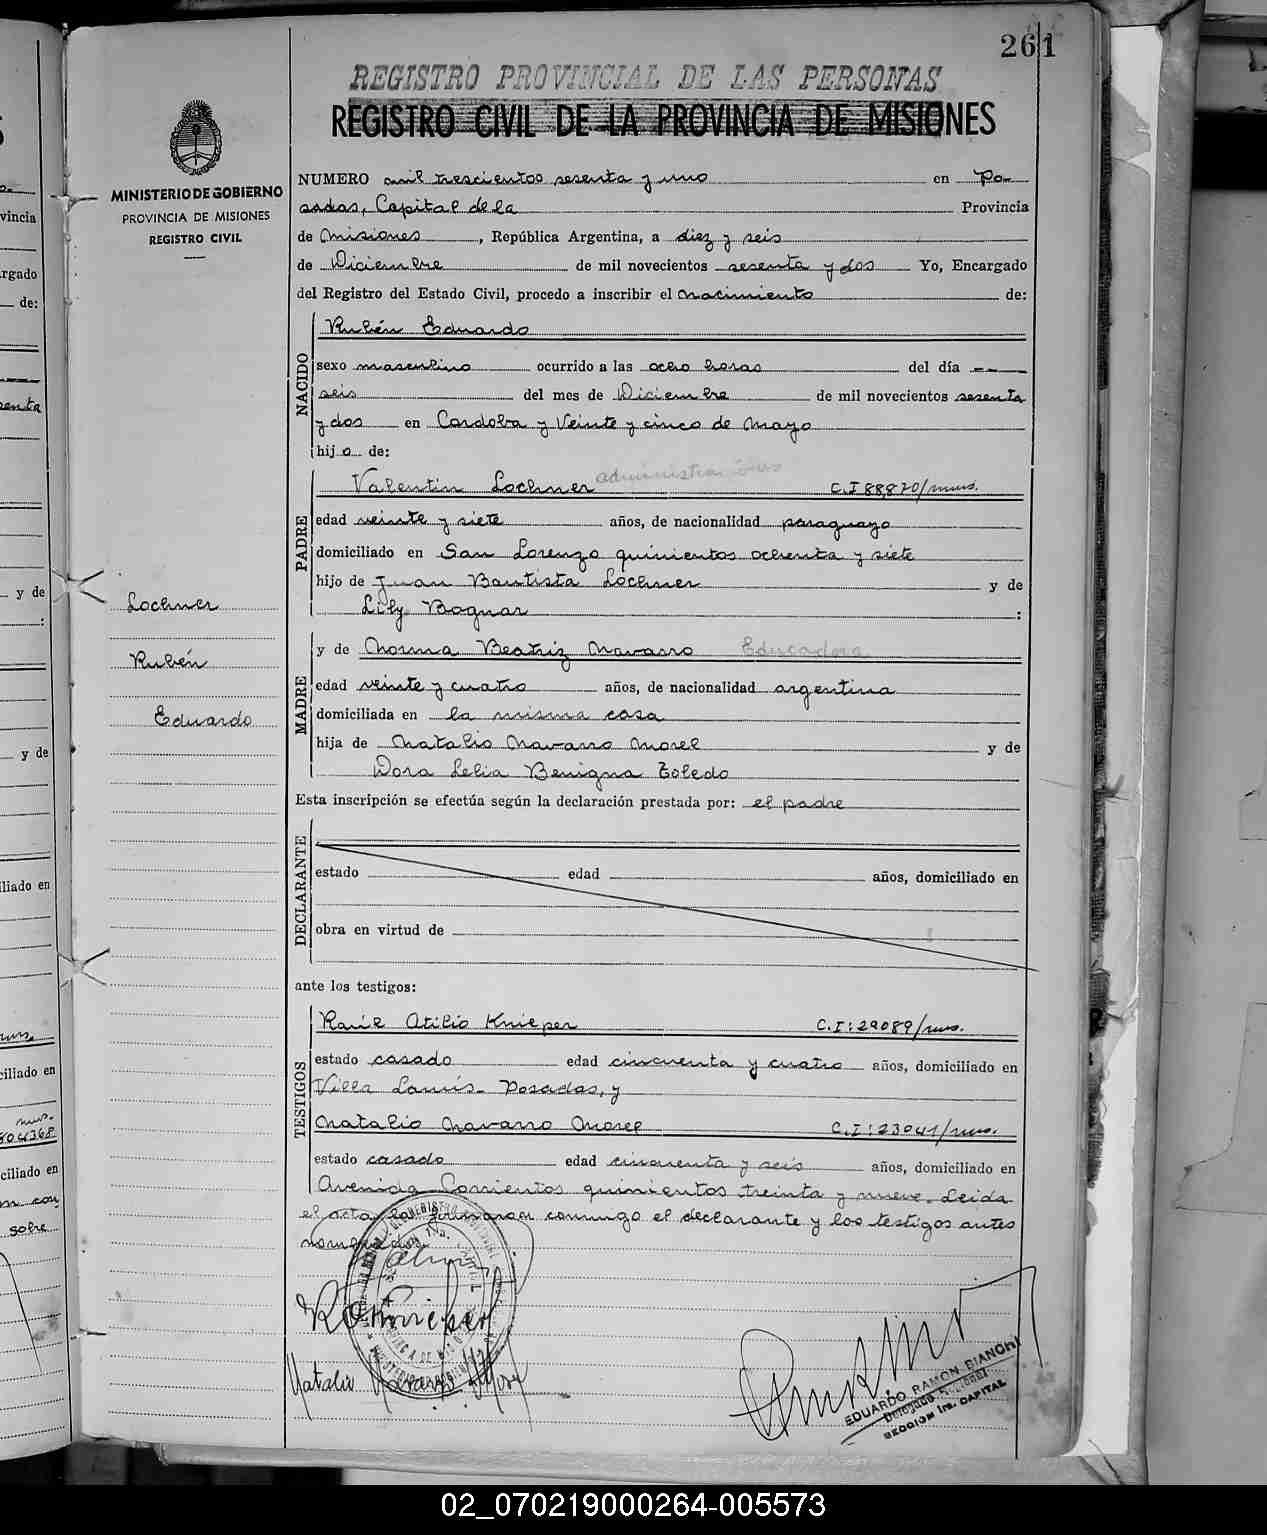 261
REGISTRO PROVINCIAL DE LAS PERSONAS
REGISTRO CIVIL DE LA PROVINCIA DE MISIONES
MINISTERIO DE GOBIERNO
PROVINCIA DE MISIONES
REGISTRO CIVIL
NUMERO mil trescientos sesenta y uno en Po-
sadas, Capital de la Provincia
de Misiones, República Argentina, a diez y seis
de Diciembre de mil novecientos sesenta y dos Yo, Encargado
del Registro del Estado Civil, procedo a inscribir el nacimiento de:
NACIDO
Rubén Eduardo
sexo masculino ocurrido a las ocho horas del día --
seis del mes de Diciembre de mil novecientos sesenta
y dos en Cordoba y Veinte y cinco de Mayo
hijo de:
PADRE
Valentin Lochner C.I 88,870/mns.
edad veinte y siete años, de nacionalidad paraguayo
domiciliado en San Lorenzo quinientos ochenta y siete
hijo de Juan Bautista Lochner y de
Lily Bognar :
MADRE
y de Norma Beatriz Navarro Educadora
edad veinte y cuatro años, de nacionalidad argentina
domiciliada en la misma casa
hija de Natalio Navarro Morel y de
Dora Lelia Benigna Toledo
Lochner
Rubén
Eduardo
Esta inscripción se efectúa según la declaración prestada por: el padre
DECLARANTE
estado edad años, domiciliado en
obra en virtud de
ante los testigos:
TESTIGOS
Raúl Atilio Knieper C.I:29089/mns.
estado casado edad cincuenta y cuatro años, domiciliado en
Villa Lanús - Posadas, y
Natalio Navarro Morel C.I:23041/mns.
estado casado edad cincuenta y seis años, domiciliado en
Avenida Corrientes quinientos treinta y nueve. Leida
el acta la firmaron conmigo el declarante y los testigos antes
nombrados.
EDUARDO RAMON BIANCHI
Delegado Seccional
SECCION 1ra. CAPITAL
02_070219000264-005573